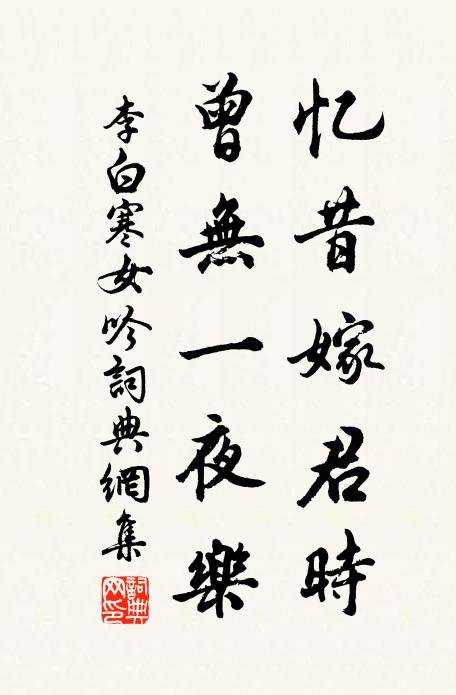 忆昔嫁君時
曾無一夜樂
李白寒女吟詞典網集
詞典网印